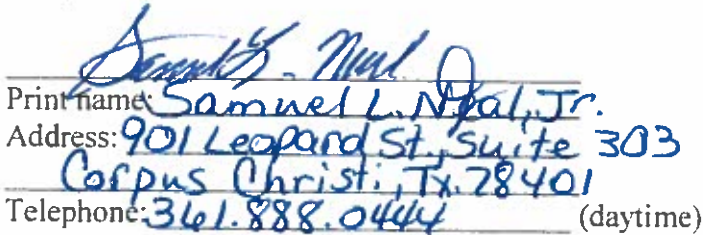 Samuel L. Neal Jr.
Print name: Samuel L. Neal, Jr.
Address: 901 Leopard St., Suite 303
Corpus Christi, Tx. 78401
Telephone: 361.888.0444 (daytime)